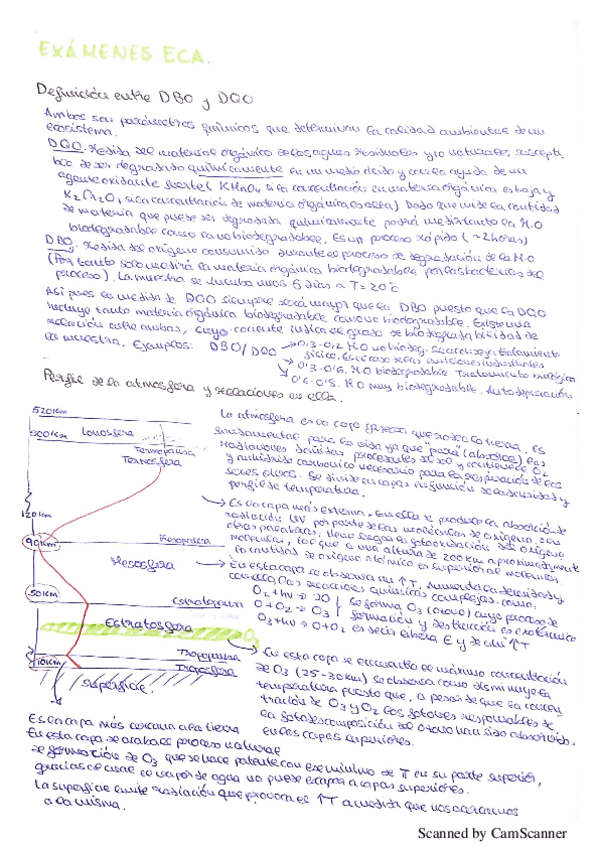 EXÁMENES ECA.
Definición entre DBO y DQO
Ambos son parámetros químicos que determinan la calidad ambiental de un
ecosistema.
DQO: Medida del material orgánico de las aguas residuales y/o naturales, suscepti
ble de ser degradado químicamente en un medio ácido y con la ayuda de un
agente oxidante fuerte ( KMnO4 si la concentración en materia orgánica es baja y
K2Cr2O7 si la concentración de materia orgánica es alta) Dado que mide la cantidad
de materia que puede ser degradada químicamente podrá medir tanto la M.O
biodegradable como la no biodegradable. Es un proceso rápido (~2 horas)
DBO: Medida del oxígeno consumido durante el proceso de degradación de la M.O
(Por tanto solo medirá la materia orgánica biodegradable por las bacterias del
proceso). La muestra se incuba unos 5 días a T=20°C
Así pues la medida de DQO siempre será mayor que la DBO puesto que la DQO
incluye tanto materia orgánica biodegradable como no biodegradable. Existe una
relación entre ambas, cuyo cociente indica el grado de biodegradabilidad de
la muestra. Ejemplos: DBO/DQO → 0.3-0.2 M.O no biodeg. tratamiento
físico. Es el caso de las industriales
→ 0.3-0.6. M.O biodegradable Tratamiento biológico
→ 0.6-0.8. M.O muy biodegradable. Autodepuración
Perfil de la atmósfera y relaciones en ella.
520Km
500Km Ionosfera
Termopausa
Termosfera
120Km
90Km Mesopausa
Mesosfera
50Km Estratopausa
Estratosfera O3
Tropopausa
10Km Troposfera
Superficie.
La atmósfera es la capa gaseosa que rodea la tierra. Es
fundamental para la vida ya que "para" (absorbe) las
radiaciones dañinas procedentes del sol y contiene el O2
y anhídrido carbónico necesario para la respiración de los
seres vivos. Se divide en capas en función de la densidad y
perfil de temperatura.
→ Es la capa más extrema. En ella se produce la absorción de
radiación UV por parte de las moléculas de oxígeno. con
otras partículas, tiene lugar la fotooxidación del oxígeno
molecular, lo que a una altura de 200 km aproximadamente
la cantidad de oxígeno atómico es superior al molecular.
→ En esta capa se observa un ↑T, aumenta la densidad y
con ella las reacciones químicas complejas. como:
O2 + hν → 2O
O + O2 → O3
O3 + hν → O + O2
Se forma O3 (ozono) cuyo proceso de
formación y destrucción es exotérmico
es decir libera E y de ahí ↑T
→ En esta capa se encuentra el máximo concentración
de O3 (25-30km) se observa como disminuye la
temperatura puesto que, a pesar de que la concen
tración de O3 y O2 los fotones responsables de
la fotodescomposición del ozono han sido absorbidos.
en las capas superiores.
Es la capa más cercana a la tierra
En esta capa se acaba el proceso natural
de formación de O3 que se hace patente con ese mínimo de T en su parte superior,
gracias al cual el vapor de agua no puede escapar a capas superiores.
La superficie emite radiación que provoca el ↑T a medida que nos acercamos
a la misma.
Scanned by CamScanner